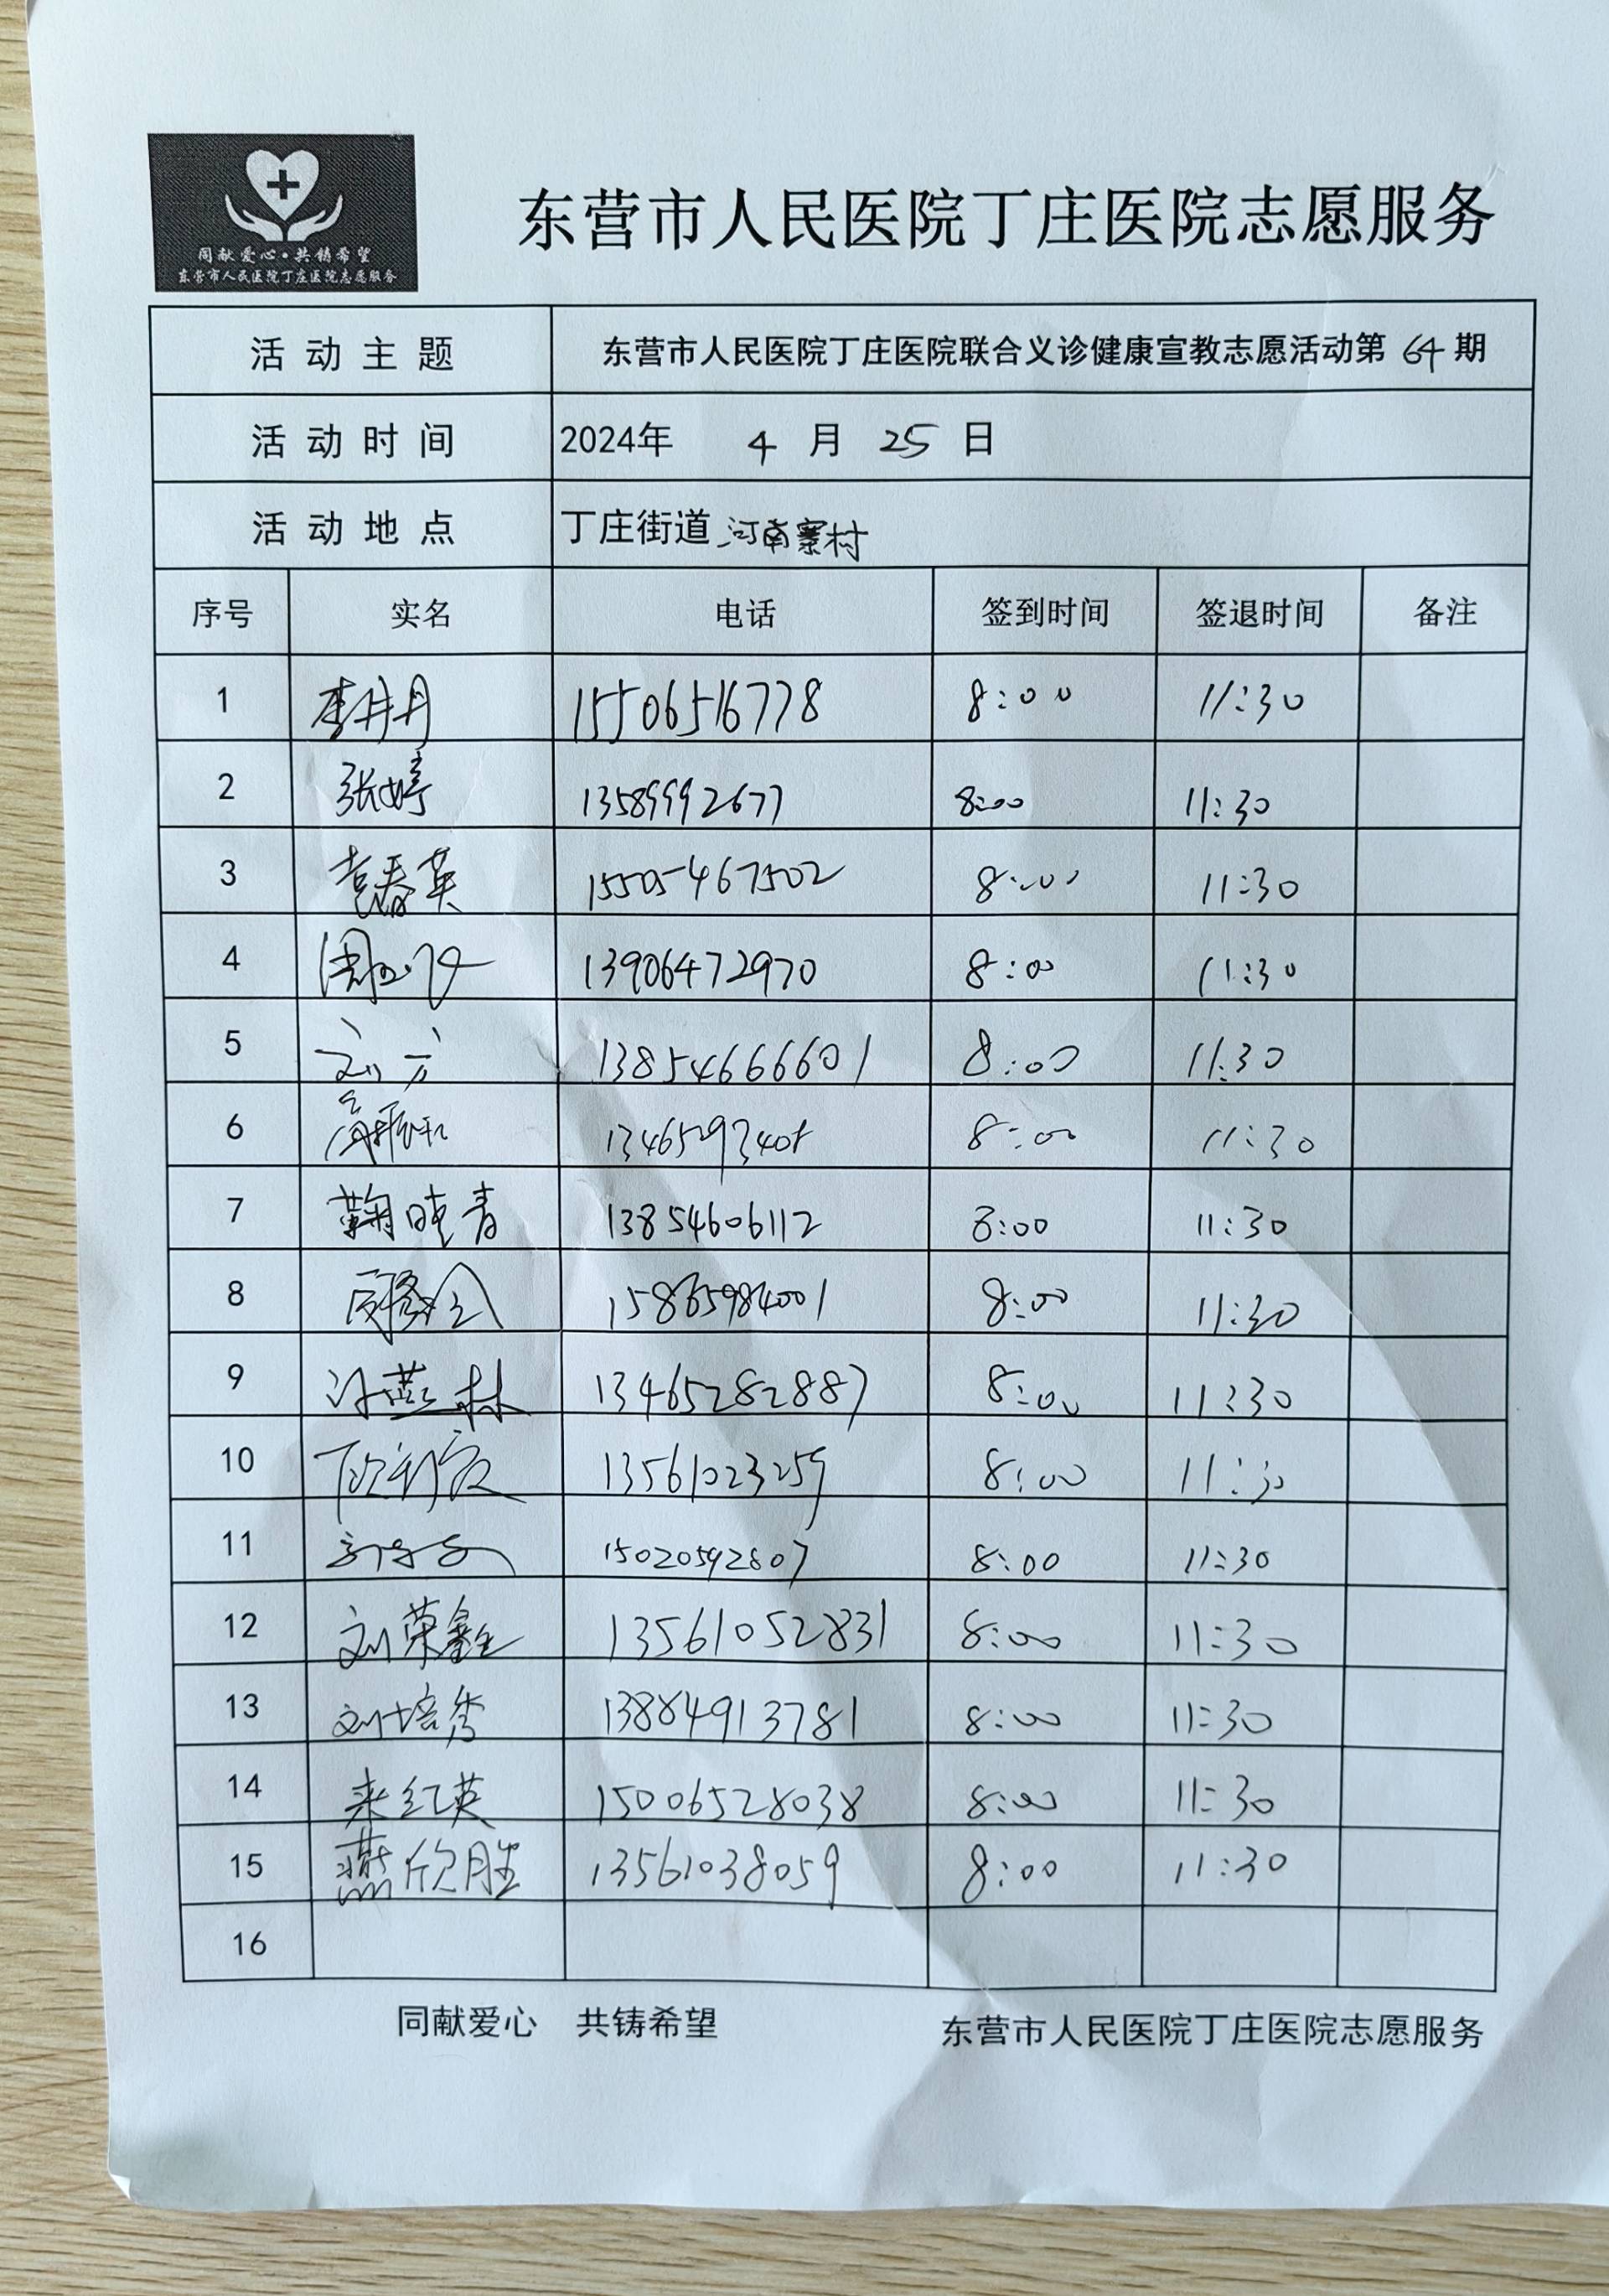 同献爱心·共铸希望
东营市人民医院丁庄医院志愿服务
东营市人民医院丁庄医院志愿服务
活动主题 东营市人民医院丁庄医院联合义诊健康宣教志愿活动第64期
活动时间 2024年 4月25日
活动地点 丁庄街道河南寨村
序号 实名 电话 签到时间 签退时间 备注
1 李丹丹 15506516778 8:00 11:30
2 张婷 13589992677 8:00 11:30
3 袁春英 15505467502 8:00 11:30
4 13906472970 8:00 11:30
5 13854666601 8:00 11:30
6 8:00 11:30
7 鞠晓青 13854606112 8:00 11:30
8 15865984001 8:00 11:30
9 许燕林 13465282887 8:00 11:30
10 13561023259 8:00 11:30
11 15020592807 8:00 11:30
12 刘荣鑫 13561052831 8:00 11:30
13 刘培秀 13884913781 8:00 11:30
14 来红英 15006528038 8:00 11:30
15 燕欣胜 13561038059 8:00 11:30
16
同献爱心 共铸希望 东营市人民医院丁庄医院志愿服务